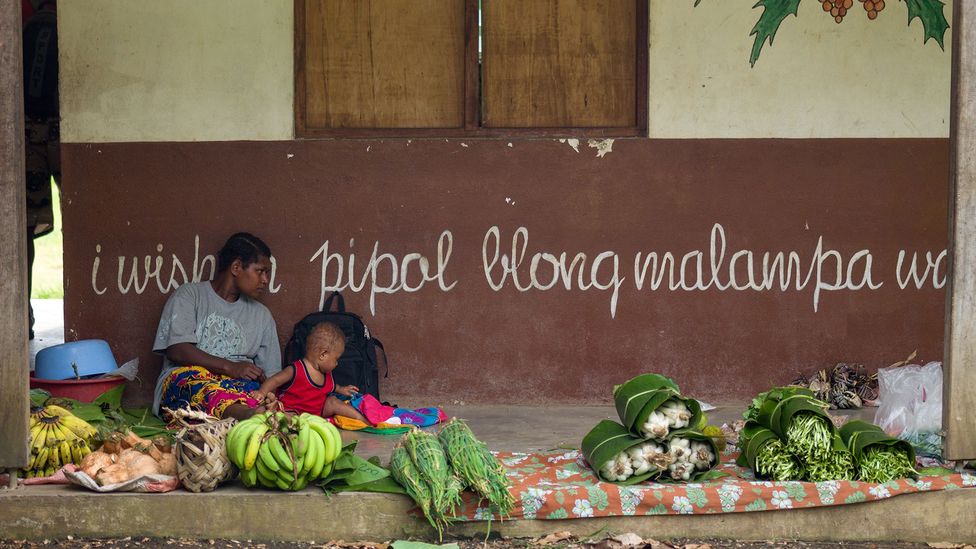 i wish pipol blong malampa wa